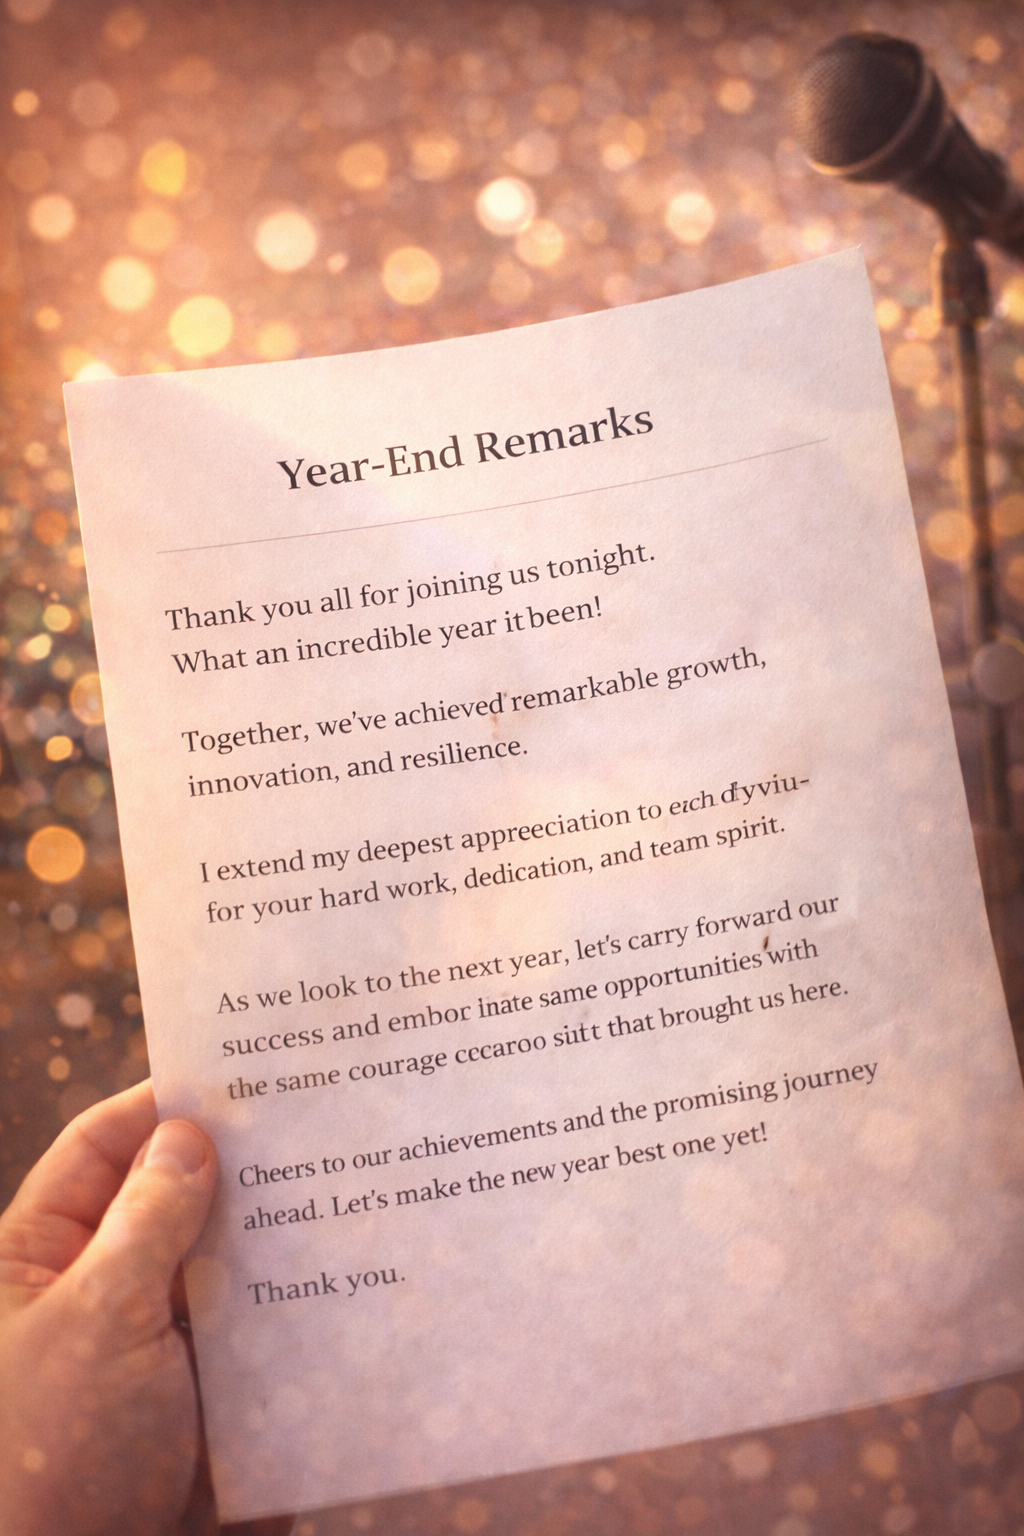 Year-End Remarks
Thank you all for joining us tonight.
What an incredible year it been!
Together, we've achieved remarkable growth,
innovation, and resilience.
I extend my deepest appreeciation to
for your hard work, dedication, and team spirit.
As we look to the next year, let's carry forward our
success and embor inate same opportunities with
the same courage cecaroo that brought us here.
Cheers to our achievements and the promising journey
ahead. Let's make the new year best one yet!
Thank you.